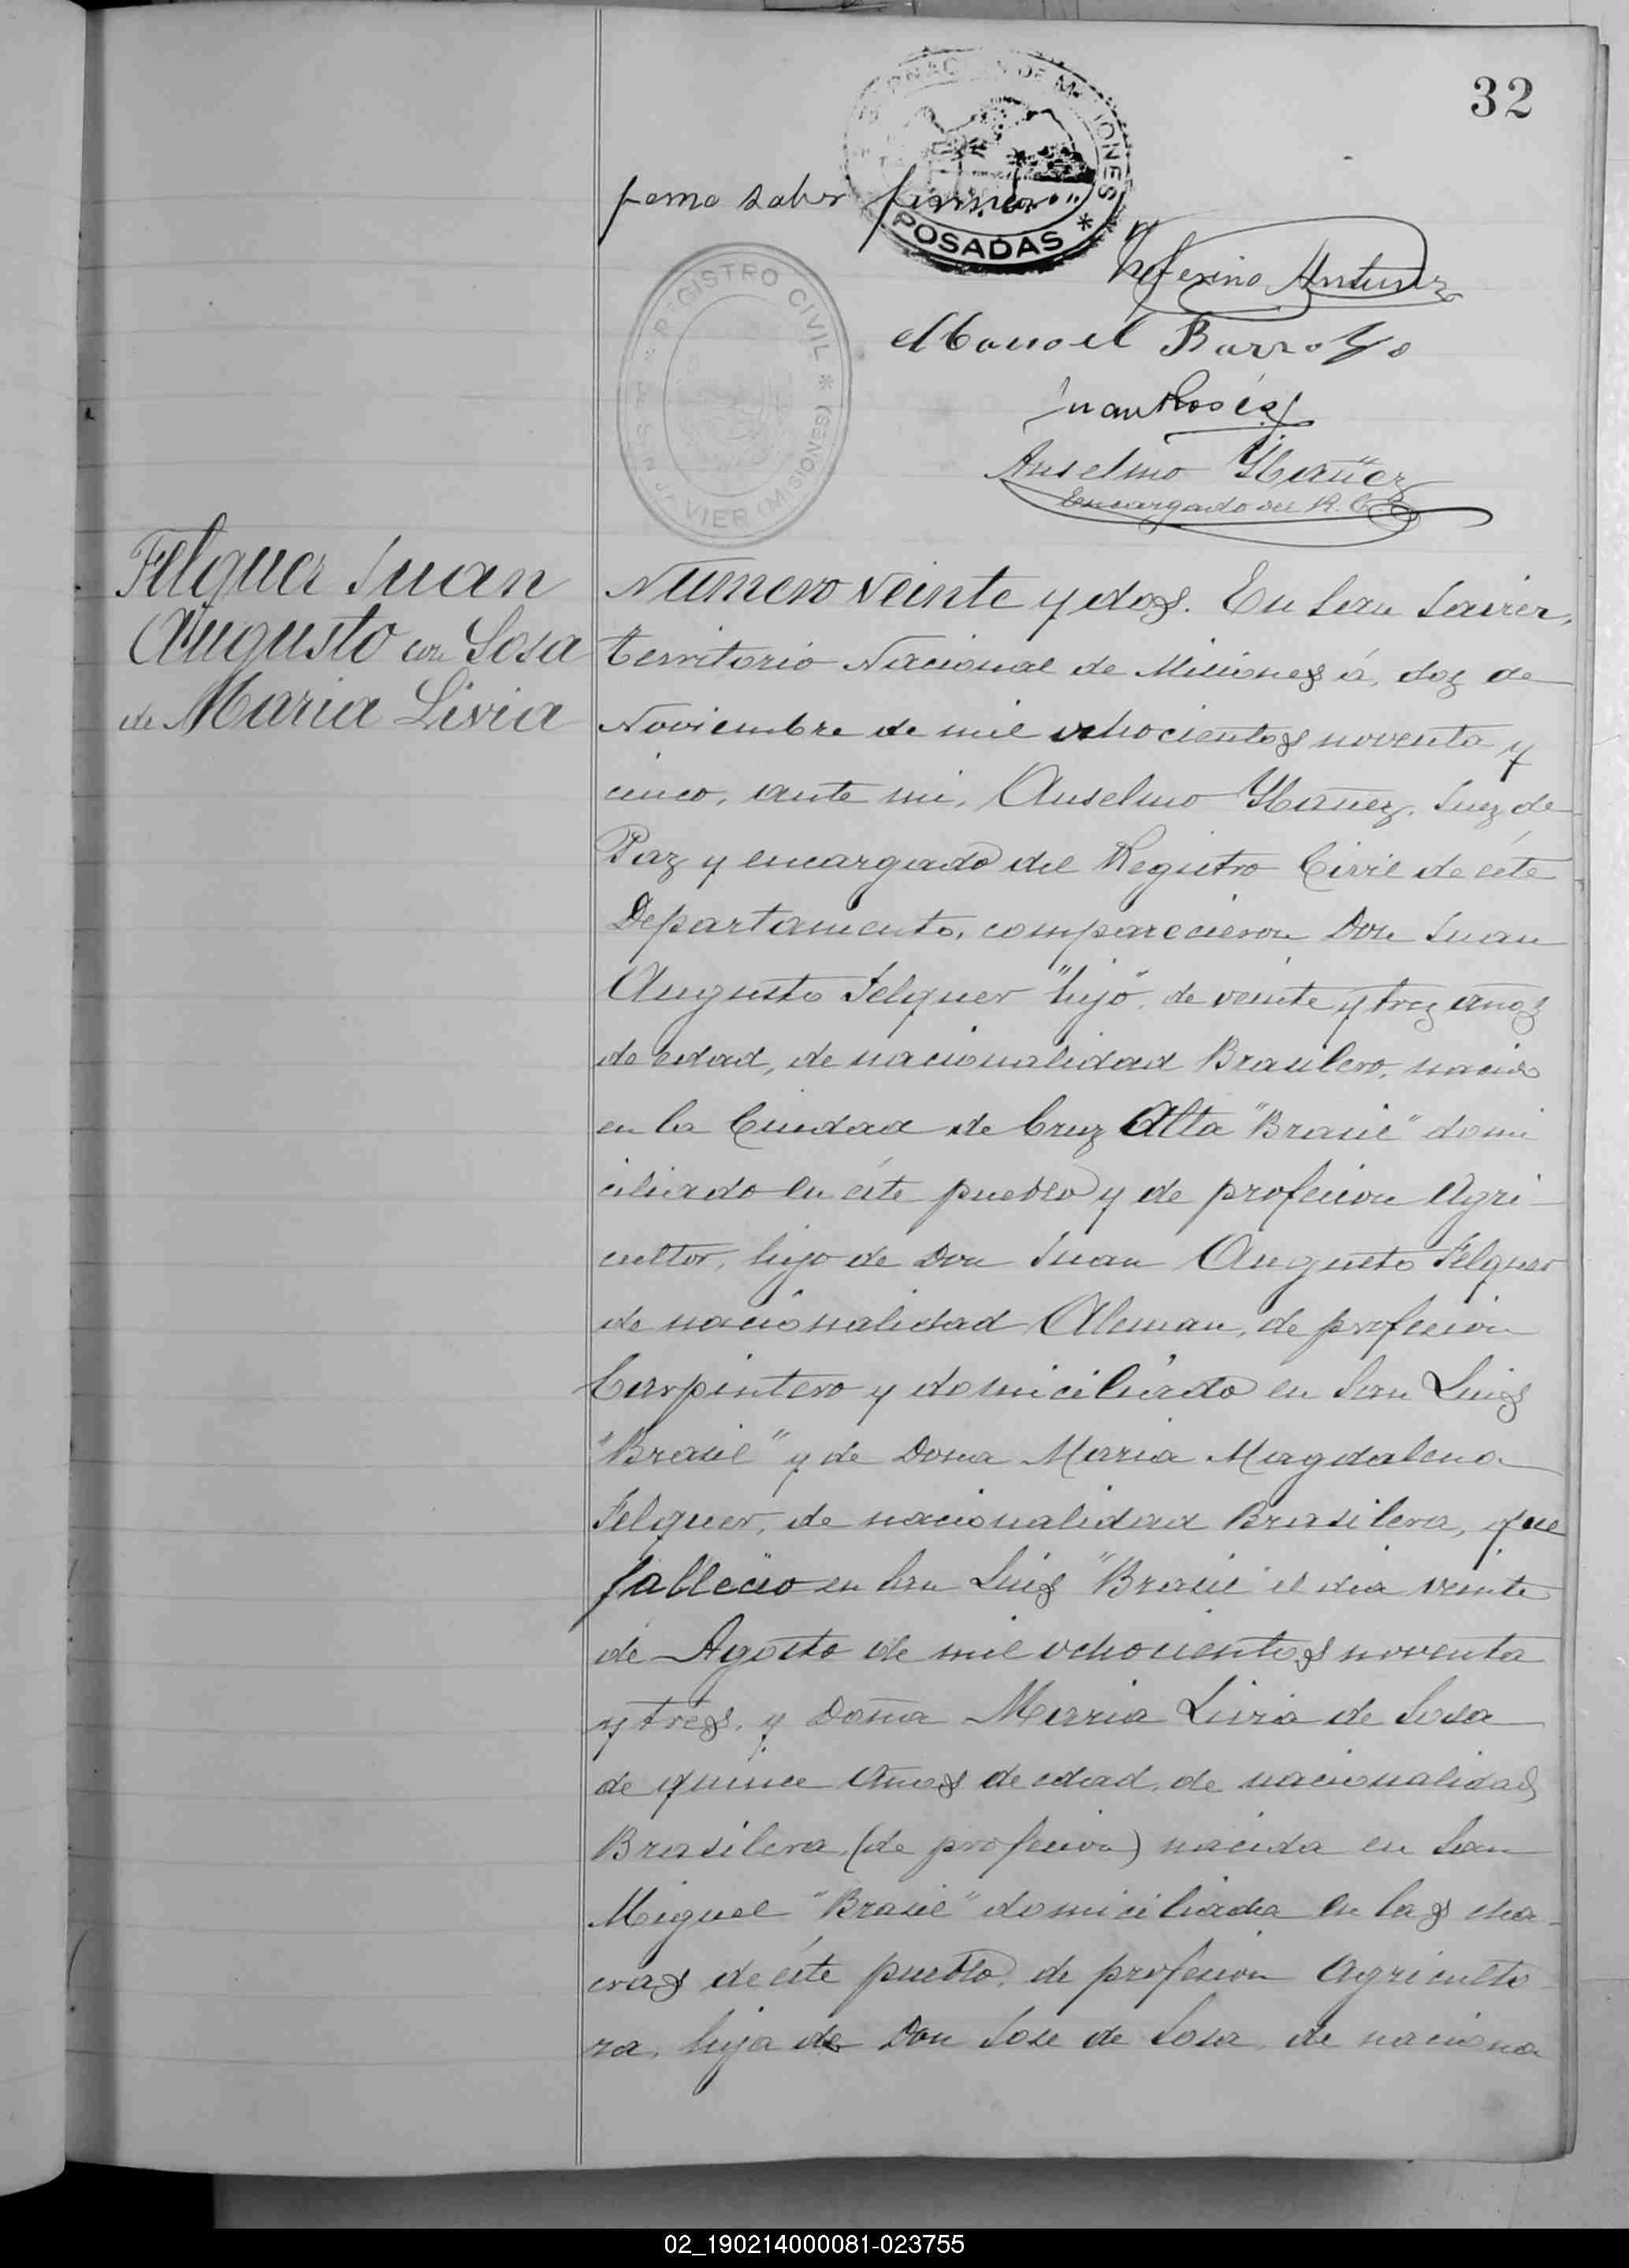 32
GOBERNACION DE MISIONES
* POSADAS *
por no saber firmar"
Zeferino Antunez
Manoel Barrozo
Juan Rosés
Anselmo Ybañez
Encargado del R. C.
REGISTRO CIVIL * SAN JAVIER (MISIONES) *
Felguer Juan
Augusto con Sosa
de Maria Livia
Número Veinte y dos. En San Javier,
Territorio Nacional de Misiones á, dos de
Noviembre de mil ochocientos noventa y
cinco, ante mi, Anselmo Ybañez, Juez de
Paz y encargado del Registro Civil de éste
Departamento, comparecieron Don Juan
Augusto Felguer "hijo", de veinte y tres años
de edad, de nacionalidad Brasilero, nacido
en la Ciudad de Cruz Alta "Brasil" domi
ciliado en éste pueblo y de profecion Agri-
cultor, hijo de Don Juan Augusto Felguer
de nacionalidad Aleman, de profecion
Carpintero y domiciliado en San Luis
"Brasil" y de Dona Maria Magdalena
Felguer, de nacionalidad Brasilera, que
fallecio en San Luis "Brasil" el dia veinte
de Agosto de mil ochocientos noventa
y tres, y Doña Maria Livia de Sosa
de quince años de edad, de nacionalidad
Brasilera, (de profecion) nacida en San
Miguel "Brasil" domiciliada en las cha-
cras de éste pueblo, de profecion Agriculto
ra, hija de Don Jose de Sosa, de naciona
02_190214000081-023755